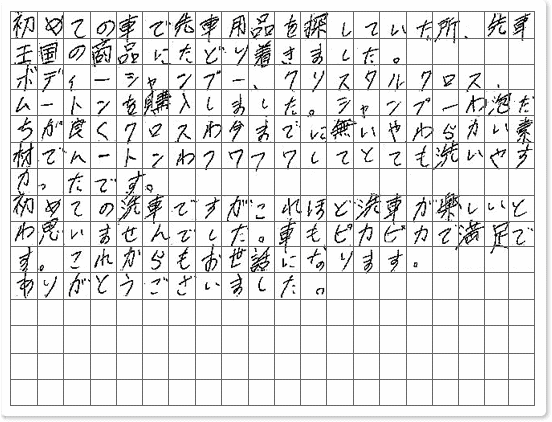 初めての車で洗車用品を探していた所、洗車
王国の商品にたどり着きました。
ボディーシャンプー、クリスタルクロス、
ムートンを購入しました。シャンプーわ泡だ
ちが良くクロスわ今までに無いやわらかい素
材でムートンわフワフワしてとても洗いやす
かったです。
初めての洗車ですがこれほど洗車が楽しいと
わ思いませんでした。車もピカピカで満足で
す。これからもお世話になります。
ありがとうございました。